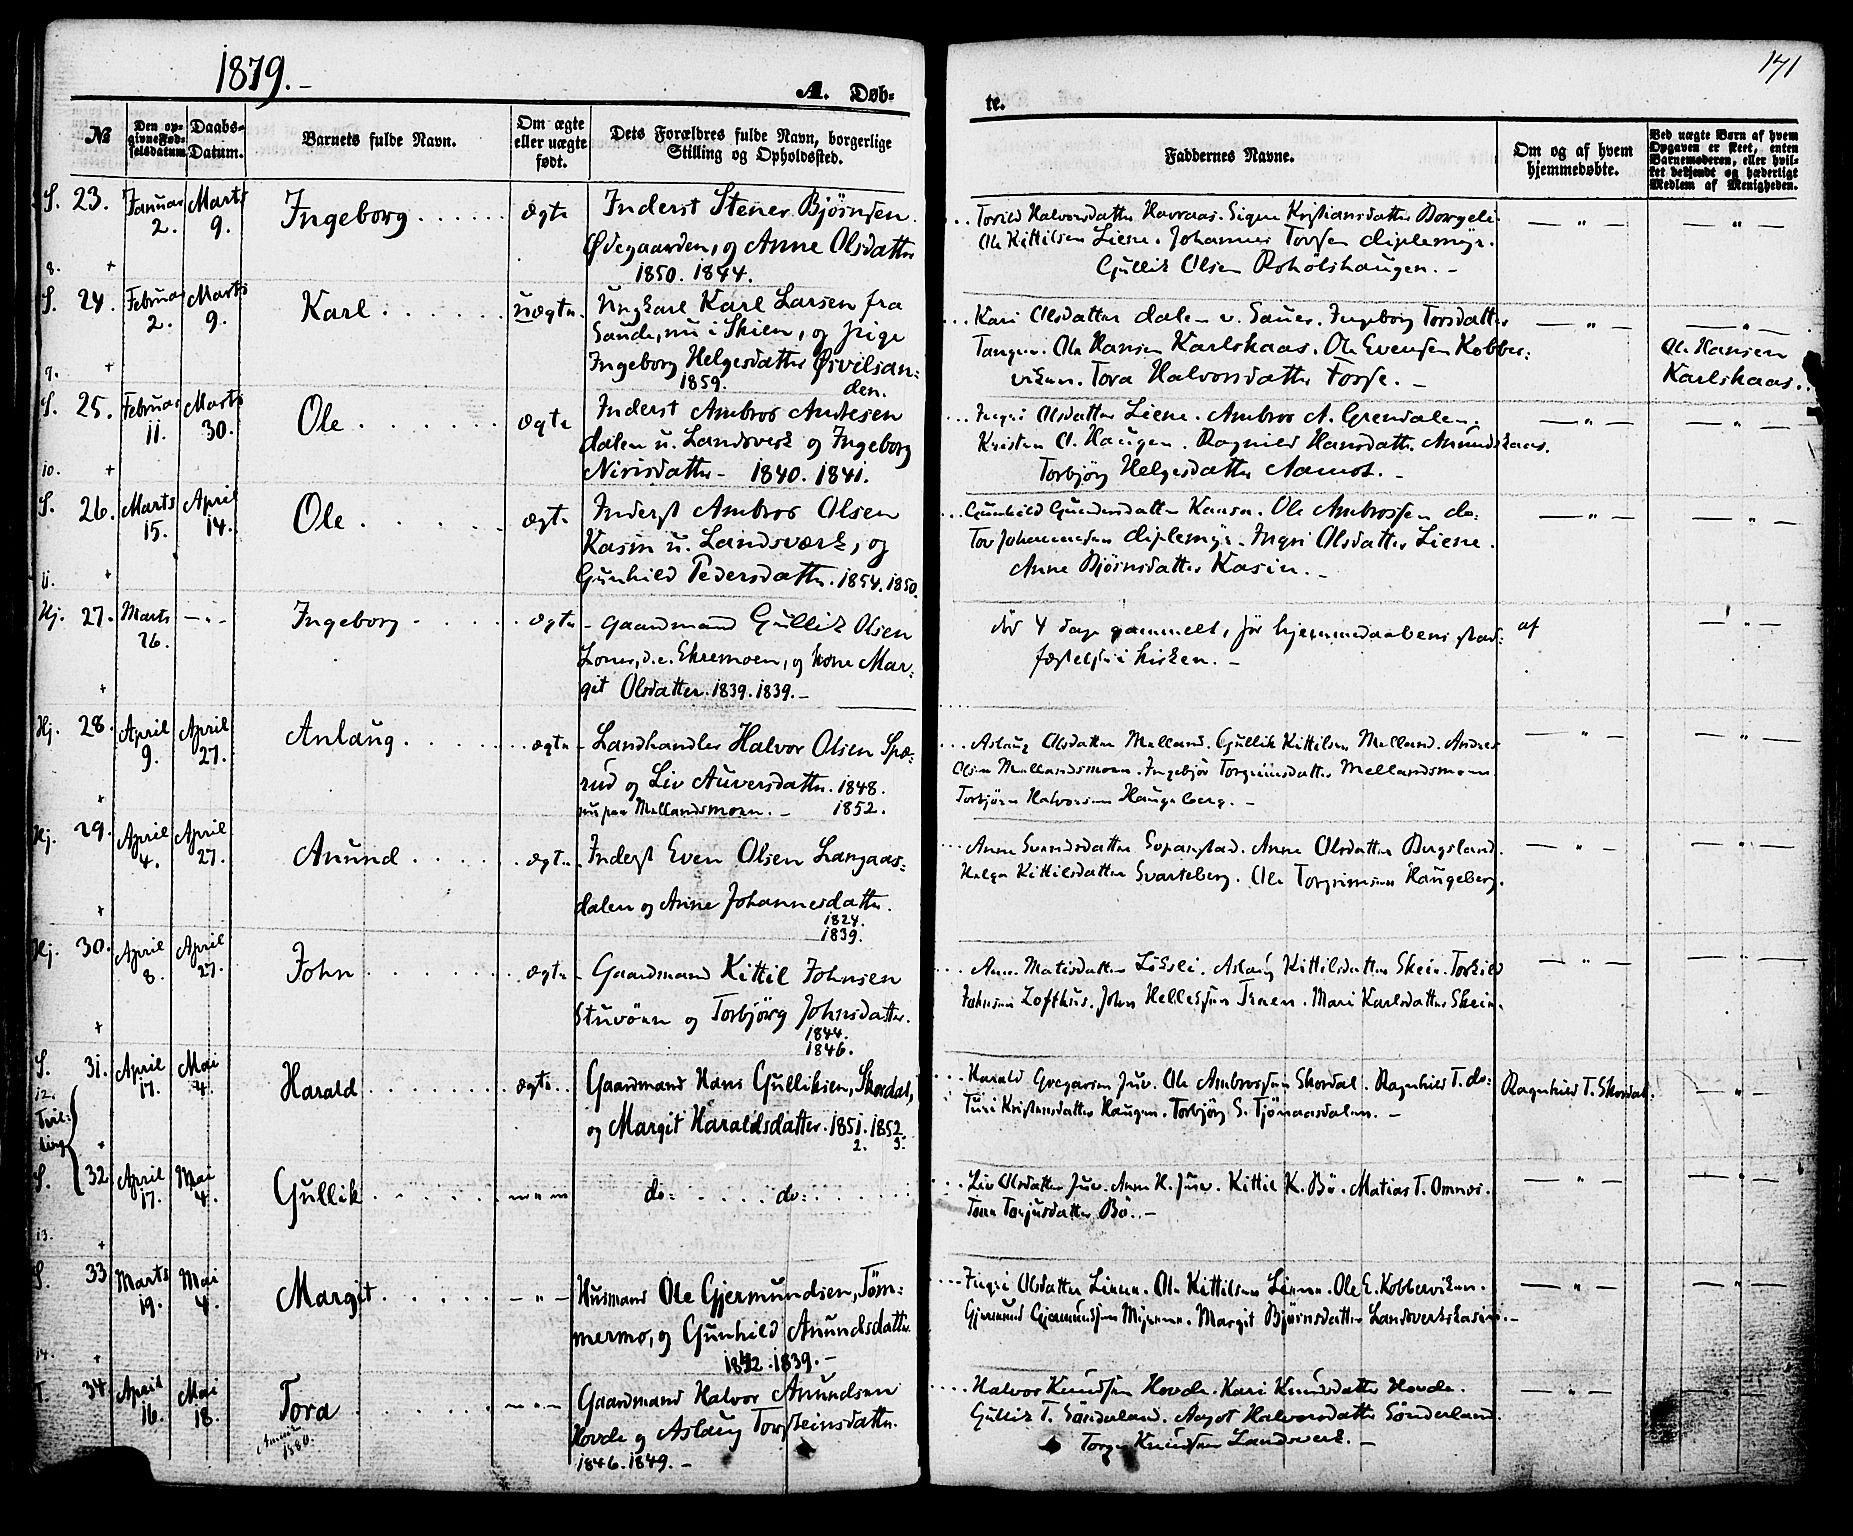 1879.-
171
A. Døb-
te.
№
Den op-
givne Fød-
selsdatum
Daabs-
Datum.
Barnets fulde Navn.
Om ægte
eller uægte
født.
Dets Forældres fulde Navn, borgerlige
Stilling og Opholdssted.
Faddernes Navne.
Om og af hvem
hjemmedøbte.
Ved uægte Børn af hvem
Opgaven er skeet, enten
Barnemoderen, eller hvil-
ket bekjendt og hæderligt
Medlem af Menigheden.
S. 23. Januar 2. Marts 9. Ingeborg ægte
Inderst Stener Bjørnsen
Ødegaarden, og Anne Olsdatter
1850. 1844.
Torild Halvorsdatter Havraas. Signe Kristiansdatter Borgeli
Ole Kittilsen Liene. Johannes Torsen Diplemyr.
Gullik Olsen Roholtshaugen. -
8.
S. 24. Februar 2. Marts 9. Karl uægte
Ungkarl Karl Larsen fra
Saude, nu i Skien, og pige
Ingeborg Helgesdatter Øsvilsan-
1859. den.
Kari Olsdatter Dalen u. Sauer. Ingeborg Torsdatter
Tangen. Ole Hansen Karlskaas. Ole Evensen Kobber-
viken. Tora Halvorsdatter Fosse. -
Ole Hansen
Karlskaas.
9.
S. 25. Februar 11. Marts 30. Ole ægte
Inderst Ambros Andresen
Dalen u. Landsverk og Ingeborg
Nirisdatter - 1840. 1841.
Ingri Olsdatter Liene. Ambros A. Grendalen,
Kristen O. Haugen. Ragnild Hansdatter Anundskaas.
Torbjørg Helgesdatter Aamot. -
10.
S. 26. Marts 15. April 14. Ole ægte
Inderst Ambros Olsen
Kasin u. Landsværk, og
Gunhild Pedersdatter. 1854. 1850.
Gunhild Gundersdatter Kaasa. Ole Ambrossen do:
Tov Johannessen Diplemyr. Ingri Olsdatter Liene.
Anne Bjørnsdatter Kasin. -
11.
Hj. 27. Marts 26. Ingeborg ægte
Gaardmand Gullik Olsen
Loner, d.e. Ekremoen, og kone Mar-
git Olsdatter. 1839. 1839. -
død 4 dage gammelt, før hjemmedaabens stad-
fæstelse i kirken. -
af
Hj. 28. April 9. April 27. Anlaug ægte
Landhandler Halvor Olsen Spæ-
rud og Liv Auversdatter. 1848.
nu paa Mellandsmoen. - 1852.
Aslaug Olsdatter Melland. Gullik Kittilsen Melland. Andres
Olsen Mellandsmoen. Ingebjør Torgrimsdatter Mellandsmoen.
Torbjørn Halvorsen Haugeberg. -
Hj. 29. April 4. April 27. Anund ægte
Inderst Even Olsen Langaas-
dalen og Anne Johannesdatter.
1824.
1839.
Anne Svendsdatter Sopanstad. Anne Olsdatter Bergsland.
Helga Kittilsdatter Svarteberg. Ole Torgrimsen Haugeberg.
Hj. 30. April 8. April 27. John ægte
Gaardmand Kittil Johnsen
Stuvøen og Torbjørg Johnsdatter.
1844.
1846.
Anne Matisdatter Liksli. Aslaug Kittilsdatter Skein. Torkild
Johnsen Lofthus. John Hellessen Trnen. Mari Karlsdatter Skein.
S. 31. April 17. Mai 4. Harald ægte
Gaardmand Hans Gulliksen, Skordal,
og Margit Haraldsdatter. 1851. 1852.
2. 3.
Harald Gregarsen Juv. Ole Ambrossen Skordal. Ragnhild T. do:
Turi Kristensdatter Haugen. Torbjørg S. Tjønaasdalen. -
Ragnhild T. Skordal.
12.
Tvil-
ling
S. 32. April 17. Mai 4. Gullik
do: do:
Liv Olsdatter Juv. Anne H. Juv. Kittil K. Bø. Matias T. Omnes.
Tone Torjusdatter Bø. -
13.
S. 33 Marts 19. Mai 4. Margit - " -
Husmand Ole Gjermundsen, Tøm-
mermo, og Gunhild Anundsdatter.
1842. 1839. -
Ingri Olsdatter Lienen. Ole Kittilsen Lienen. Ole E. Kobberviken.
Gjermund Gjermundsen Myrene. Margit Bjørnsdatter Landsverkskasin. -
14.
T. 34 April 16. Mai 18. Tora
1880.
Gaardmand Halvor Anundsen
Hovde og Aslaug Torsteinsdatter.
1846. 1849. -
Halvor Knudsen Hovde. Kari Knudsdatter Hovde.
Gullik T. Sønderland. Aagot Halvorsdatter Sønderland.
Torge Knudsen Landsverk. -